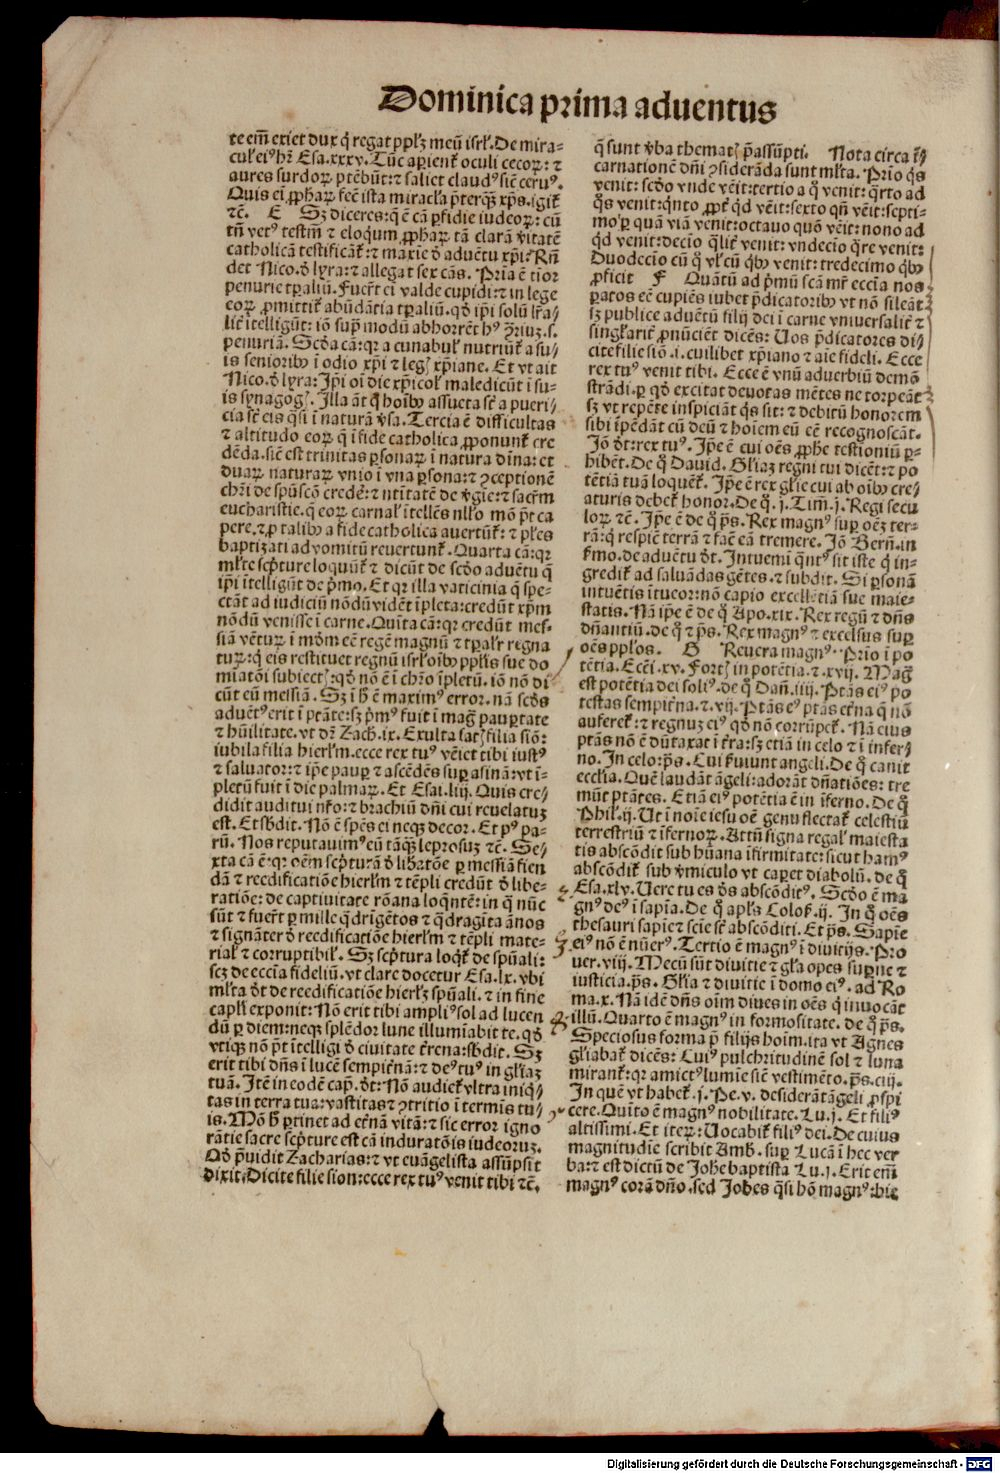 Dominica prima aduentus
te em̄ exiet dux q̇ regat pplꝫ meū isrł. De mira-
cuł eiꝰ hr̄ Esa.xxxv. Tūc apienť oculi cecoꝝ: ⁊
aures surdoꝝ ptēbūt: ⁊ saliet claudꝰ sic̄ ceruꝰ.
Quis ei ꝓphaꝝ fec̄ ista miracła p̄terqꝫ xp̄s. igiť
⁊c̄. E Sꝫ diceres: q̄ ē cā ꝑfidie iudeoꝝ: cū
tn̄ vetꝰ testm̄ ⁊ eloqum ꝓphaꝝ tā clarā v̄itatē
catholicā testificāť: ⁊ maxie d̄ aduētu xp̄i? Rn̄
det Nico. d̄ lyra: ⁊ allegat sex cās. Pria ē tior
penurie tꝑaliū. Fuer̄t ei valde cupidi: ⁊ in lege
eoꝝ ꝓmittiť abūdātia tꝑaliū. qd̄ ip̄i solū lr̄a-
lit̄ ītelligūt: iō sup̄ modū abhorrēt hꝰ ꝯ̄riuꝫ. s.
penuriā. Scd̄a cā: qr a cunabuł nutriūť a su-
is senioribꝰ ī odio xp̄i ⁊ legꝭ xp̄iane. Et vt ait
Nico. d̄ lyra: Ip̄i oī die xp̄icoł maledicūt ī su-
is synagogꝭ. Illa āt q̄ hoībꝰ assueta sт̄ a pueri-
cia st̄ eis q̄si ī naturā v̄sa. Tercia ē difficultas
⁊ altitudo eoꝝ q̄ ī fide catholica ꝓponunť cre
dēda. sic̄ est trinitas ꝑsonaꝝ ī natura dīna: et
duaꝝ naturaꝝ vnio ī vna ꝑsona: ⁊ ꝯceptionē
chr̄i de spūscō credeř: ⁊ ntītatē de v̄gīe: ⁊ sacr̄m
eucharistie. q̄ eoꝝ carnał ītellēs nłło mō pt̄ ca
pere. ⁊ ꝓ talibꝰ a fide catholica auertūť: ⁊ płes
baptizati ad vomitū reuertunť. Quarta cā: qr
młte scpt̄ure loquūť ⁊ dicūt de scd̄o aduētu q̄
ip̄i ītelligūt de p̄mo. Et qr illa vaticinia q̄ spe-
ctāt ad iudiciū nōdū vidēt īpleta: credūt xp̄m
nōdū venisse ī carne. Quīta cā: qr credūt mes-
siā vētuꝝ ī mōm eē regē magnū ⁊ tꝑałr regna
tuꝝ: q̄ eis restituet regnū isrł. oībꝰ ppłis sue do
miatōi subiectꝭ: qd̄ nō ē ī chr̄o īpletū. iō nō di
cūt eū messiā. Sꝫ ī h̄ ē maximꝰ error. nā scd̄s
aduētꝰ erit ī ptāte: sꝫ p̄mꝰ fuit ī mag̃ pauꝑtate
⁊ hūilitate. vt dr̄ Zach. ix. Exulta satꝭ filia siō:
iubila filia hierłm. ecce rex tuꝰ vēiet tibi iustꝰ
⁊ saluator: ⁊ ip̄e pauꝑ ⁊ ascēdēs suꝑ asinā: vt ī-
pletū fuit ī die palmaꝝ. Et Esai. liij. Quis cre⸗
didit auditui nr̄o: ⁊ brachiū dn̄i cui reuelatuꝫ
est. Et sb̄dit. Nō ē spēs ei neqꝫ decor. Et pꝰ pa-
rū. Nos reputauimꝰ eū tāqꝫ leprosuꝫ ⁊c̄. Se⸗
xta cā ē: qr oēm scpt̄urā d̄ lib̄rtōe ꝑ messiā fien
dā ⁊ reedificatiōe hierłm ⁊ tēpli credūt d̄ libe-
ratiōe: de captiuitate rōana loqn̄tē: in q̄ nūc
sūt ⁊ fuer̄t ꝑ mille q̄drigētos ⁊ q̄dragīta ānos
⁊ signāter d̄ reedificatiōe hierłm ⁊ tēpli mate-
riał ⁊ corruptibił. Sꝫ scpt̄ura loqť de spūali:
scꝫ de ecc̄ia fideliū. vt clare docetur Esa. lx. vbi
młta dr̄t de reedificatiōe hierłꝫ spūali. ⁊ in fine
capłi exponit: Nō erit tibi ampliꝰ sol ad lucen
dū ꝑ diem: neqꝫ splēdor lune illumīabit te. qd̄
vtiqꝫ nō pt̄ ītelligi d̄ ciuitate tr̄ena: sb̄dit. Sꝫ
erit tibi dn̄s ī lucē sempit̄nā: ⁊ deꝰ tuꝰ in głiaꝫ
tuā. Itē in eodē cap̄. dr̄t: Nō audieť vltra iniq⸗
tas in terra tua: vastitas ⁊ ꝯtritio ī termīs tu⸗
is. Mō h̄ ꝑtinet ad et̄nā vitā: ⁊ sic error igno
rātie sacre scpt̄ure est cā induratōis iudeoruꝫ.
Qd̄ p̄uidit Zacharias: ⁊ vt euāgelista assūpsit
dixit. Dicite filie sion: ecce rex tuꝰ venit tibi ⁊c̄.
q̄ sunt v̄ba thematꝭ p̄assūpti. Nota circa ī⸗
carnationē dn̄i ꝯsiderāda sunt młta. Prīo q̇s
venit: scd̄o vnde vēit: tertio a q̇ venit: q̄rto ad
q̇s venit: qn̄to ꝓpt̄ qd̄ vēit: sexto qn̄ vēit: septi-
mo ꝑ quā viā venit: octauo quō vēit: nono ad
qd̄ venit: decīo q̄lit̄ venit: vndecīo q̄re venit:
Duodecīo cū q̇ vł cū qb̄ꝰ venit: tredecimo qb̄ꝰ
ꝓficit F Quātū ad p̄mū scā mr̄ ecc̄ia nos
ꝑatos eē cupiēs iubet p̄dicatoribꝰ vt nō sileāt
sꝫ publice aduētū filij dei ī carne vniuersalit̄ ⁊
singłarit̄ ꝓnūciēt dicēs: Uos p̄dicatores di⸗
cite filie siō .i. cuilibet xp̄iano ⁊ aīe fideli. Ecce
rex tuꝰ venit tibi. Ecce ē vnū aduerbiū demō
strādi. ꝑ qd̄ excitat deuotas mētes ne torpeāt
sꝫ vt repēte inspiciāt q̇s sit: ⁊ debitū honorem
sibi īpēdāt cū deū ⁊ hoīem eū eē recognoscāt.
Iō dr̄t: rex tuꝰ. Ip̄e ē cui oēs ꝓphe testioniū ꝑ-
hibēt. De q̇ Dauid. Głiaꝫ regni tui dicēt: ⁊ po
tētiā tuā loquēť. Ip̄e ē rex głie cui ab oībꝰ cre⸗
aturis debeť honor. De q̇ .j. Tim̄. j. Regi secu
loꝝ ⁊c̄. Ip̄e ē de q̇ p̄s. Rex magnꝰ suꝑ oēꝫ ter-
rā: q̇ respic̄t terrā ⁊ fac̄ eā tremere. Iō Bern̄. in
f̄mo. de aduētu dr̄t. Intuemī qn̄tꝰ sit iste q̇ in-
gredīť ad saluādas gētes. ⁊ subdit. Si ꝑsonā
intuētis ītueor: nō capio excellētiā sue maie-
statis. Nā ip̄e ē de q̇ Apo. xix. Rex regū ⁊ dn̄s
dn̄antiū. de q̇ ⁊ p̄s. Rex magnꝰ ⁊ excelsus suꝑ
oēs ppłos. G Reuera magnꝰ. Prīo ī po
tētia. Ecc̄i. xv. Fortꝭ in potētia. ⁊ xvij. Mag̃
est potētia dei soliꝰ. de q̇ Dan̄. iiij. Ptās eiꝰ po
testas sempit̄na. ⁊ vij. Ptās eiꝰ ptās et̄na q̄ nō
aufereť: ⁊ regnuꝫ eiꝰ qd̄ nō corrūpeť. Nā eius
ptās nō ē dūtaxat ī tr̄a: sꝫ etiā in celo ⁊ ī infer⸗
no. In celo: p̄s. Cui ẜuiunt angeli. De q̇ canit
ecclīa. Quē laudāt āgeli: adorāt dn̄atiōes: tre
mūt ptātes. Etiā eiꝰ potētia ē in īferno. De q̇
Phil. ij. Ut ī noīe iesu oē genu flectať celestiū
terrestriū ⁊ īfernoꝝ. Attn̄ signa regał maiesta
tis abscōdit sub hūana īfirmitate: sicut hamꝰ
abscōdiť sub v̄miculo vt capet diabolū. de q̇
Esa. xlv. Uere tu es dēs abscōditꝰ. Scd̄o ē ma
gnꝰ deꝰ ī sapīa. De q̇ apłs Colos̄. ij. In q̇ oēs
thesauri sapīe ⁊ scīe st̄ abscōditi. Et p̄s. Sapīe
eiꝰ nō ē nūerꝰ. Tertio ē magnꝰ ī diuitijs. Pro
uer. viij. Mecū sūt diuitie ⁊ głia opes suꝑne ⁊
iusticia. p̄s. Głia ⁊ diuitie ī domo eiꝰ. ad Ro
ma. x. Nā idē dn̄s oīm diues in oēs q̇ inuocāt
illū. Quarto ē magnꝰ in formositate. de q̇ p̄s.
Speciosus forma p̄ filijs hoīm. ita vt Agnes
głiabať dicēs: Cuiꝰ pulchritudinē sol ⁊ luna
miranť: qr amictꝰ lumīe sic̄ vestimēto. p̄s. ciij.
In quē vt habeť .j. Pe. v. desiderāt āgeli ꝓspi
cere. Quīto ē magnꝰ nobilitate. Lu. j. Et filiꝰ
altissimi. Et iteꝝ: Uocabiť filiꝰ dei. De cuius
magnitudīe scribit Amb̄. suꝑ Lucā ī hec ver
ba: ⁊ est dictū de Johē baptista Lu. j. Erit em̄
magnꝰ corā dn̄o. sed Johes q̄si hō magnꝰ: hic
Digitalisierung gefördert durch die Deutsche Forschungsgemeinschaft - DFG